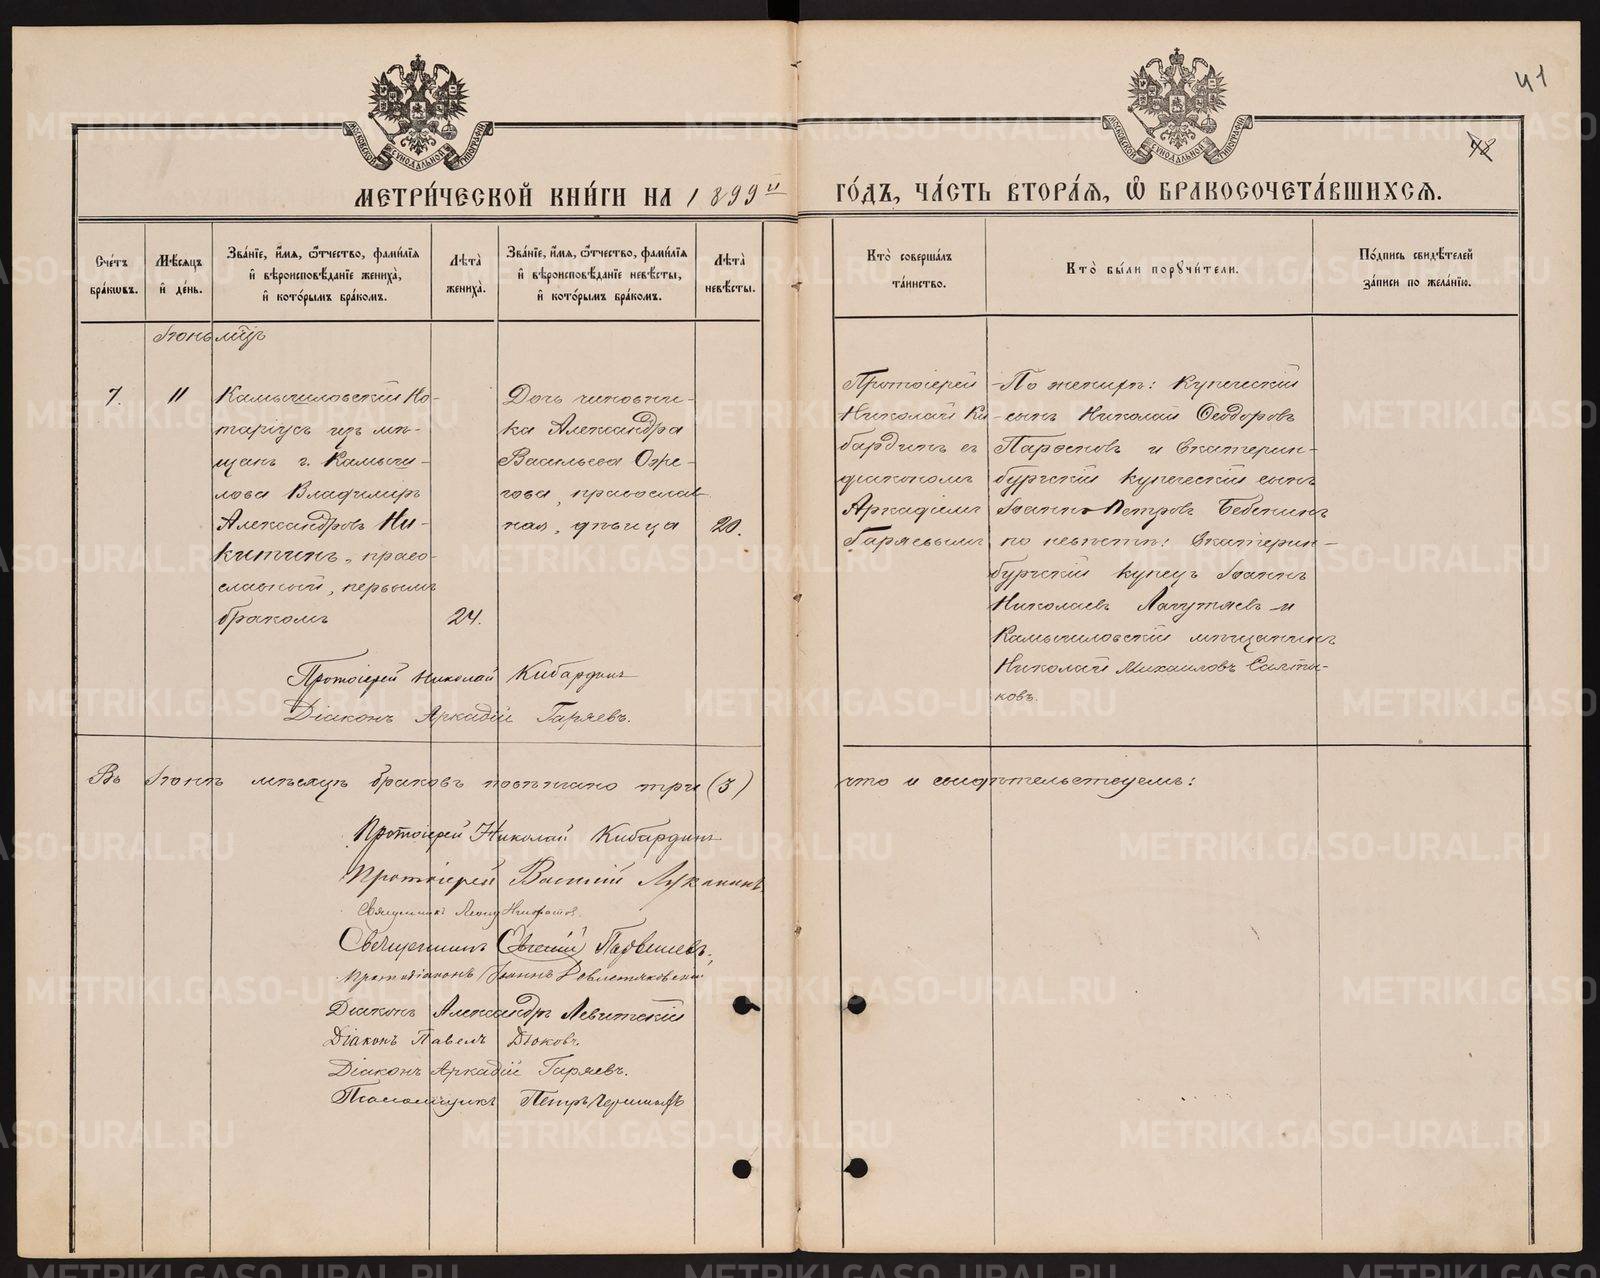 41
42
МОСКОВСКОЙ СѴНОДАЛЬНОЙ ТИПОГРАФІИ
МОСКОВСКОЙ СѴНОДАЛЬНОЙ ТИПОГРАФІИ
МЕТРИ́ЧЕСКОЙ КНИ́ГИ НА 1899й ГО́ДЪ, ЧА́СТЬ ВТОРА́Я, Ѽ БРАКОСОЧЕТА́ВШИХСЯ.
Сче́тъ бра́кѡвъ.
Мѣ́сяцъ и҆ де́нь.
Зва́нїе, и҆́мя, ѻ҆́тчество, фами́лїя
и҆ вѣроисповѣ́данїе жениха̀,
и҆ кото́рымъ бра́комъ.
Лѣта̀ жениха̀.
Зва́нїе, и҆́мя, ѻ҆́тчество, фами́лїя
и҆ вѣроисповѣ́данїе невѣ́сты,
и҆ кото́рымъ бра́комъ.
Лѣта̀ невѣ́сты.
Кто̀ соверша́лъ та́инство.
Кто̀ бы́ли порꙋчи́тели.
По́дпись свидѣ́телей за́писи по жела́нїю.
Іюнь мцъ
7.
11
Камышловскій Но-
таріусъ изъ мѣ-
щанъ г. Камыш-
лова Владимиръ
Александровъ Ни-
китинъ, право-
славный, первымъ
бракомъ
24.
Дочь чиновни-
ка Александра
Васильева Оже-
гова, православ
ная, дѣвица
20.
Протоіерей
Николай Ки-
бардинъ съ
діакономъ
Аркадіемъ
Гаряевымъ
По женихѣ: Купеческій
сынъ Николай Ѳеодоровъ
и Екатерин-
бургскій купеческій сынъ
Іоаннъ Петровъ Бебенинъ
по невѣстѣ: Екатерин-
бургскій купецъ Іоаннъ
Николаевъ Лагутяевъ и
Камышловскій мѣщанинъ
Николай Михаиловъ Салта-
ковъ.
Протоіерей Николай Кибардинъ
Діаконъ Аркадій Гаряевъ.
Въ Іюнѣ мѣсяцѣ браковъ повѣнчано три (3) что и свидѣтельствуемъ:
Протоіерей Николай Кибардинъ
Протоіерей Василій Луканинъ
Священникъ
Священникъ Евгеній
Протодіаконъ Іоаннъ
Діаконъ Александръ Левитскій
Діаконъ Павелъ Дюковъ.
Діаконъ Аркадій Гаряевъ.
Псаломщикъ Петръ
METRIKI.GASO-URAL.RU